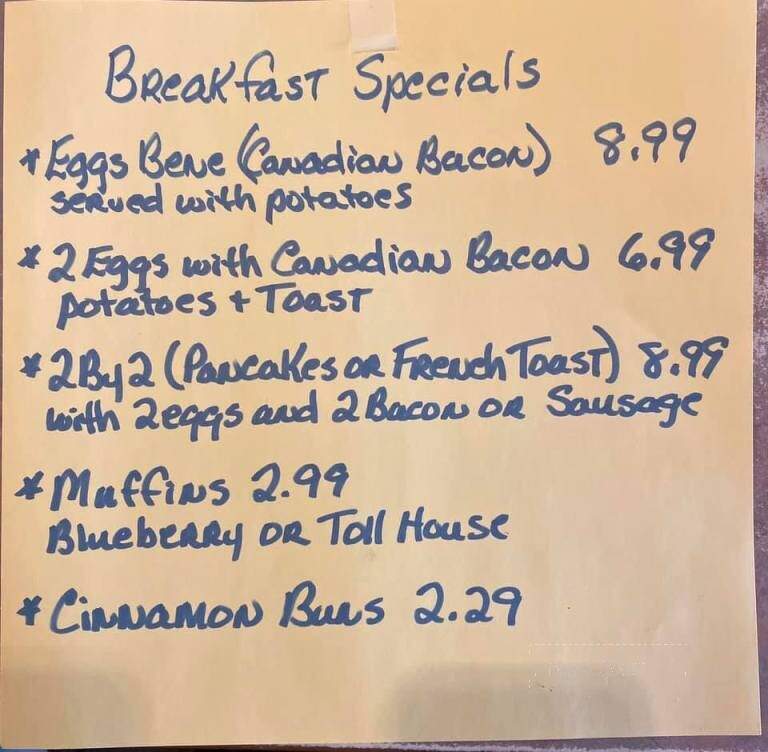 Breakfast Specials
* Eggs Bene (Canadian Bacon) 8.99
served with potatoes
* 2 Eggs with Canadian Bacon 6.99
potatoes + Toast
* 2 By 2 (Pancakes or French Toast) 8.99
with 2 eggs and 2 Bacon or Sausage
* Muffins 2.99
Blueberry or Toll House
* Cinnamon Buns 2.29